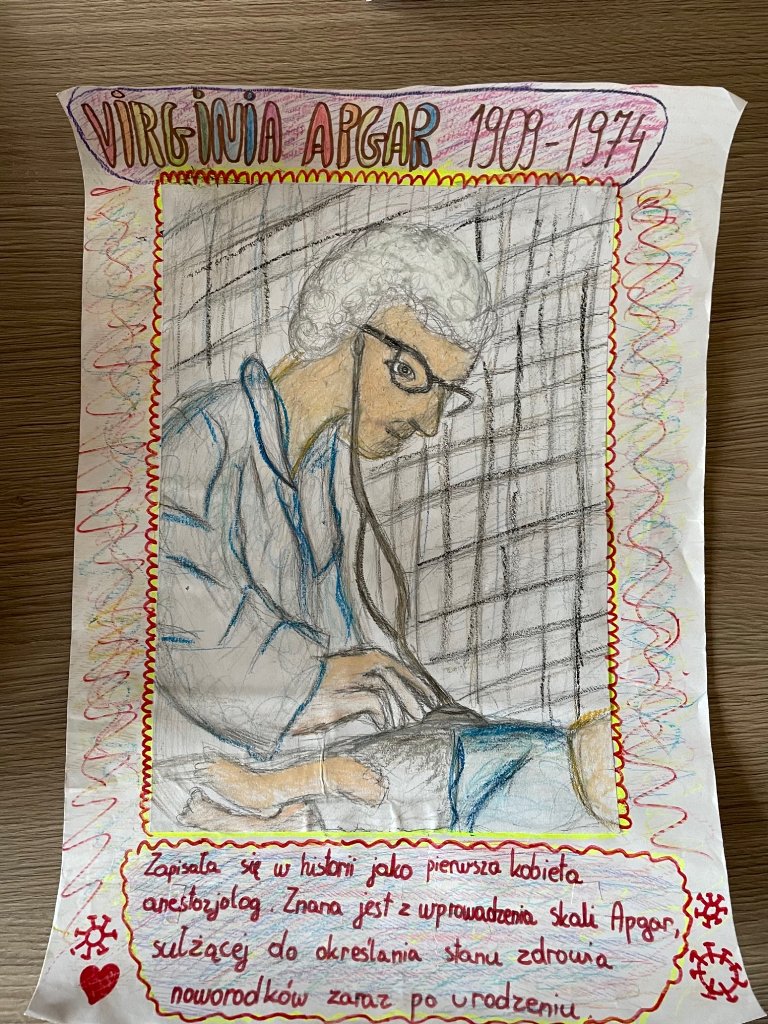 VIRGINIA APGAR 1909-1974
Zapisała się w historii jako pierwsza kobieta
anestozjolog. Znana jest z wprowadzenia skali Apgar,
sulżącej do określania stanu zdrowia
noworodków zaraz po urodzeniu.